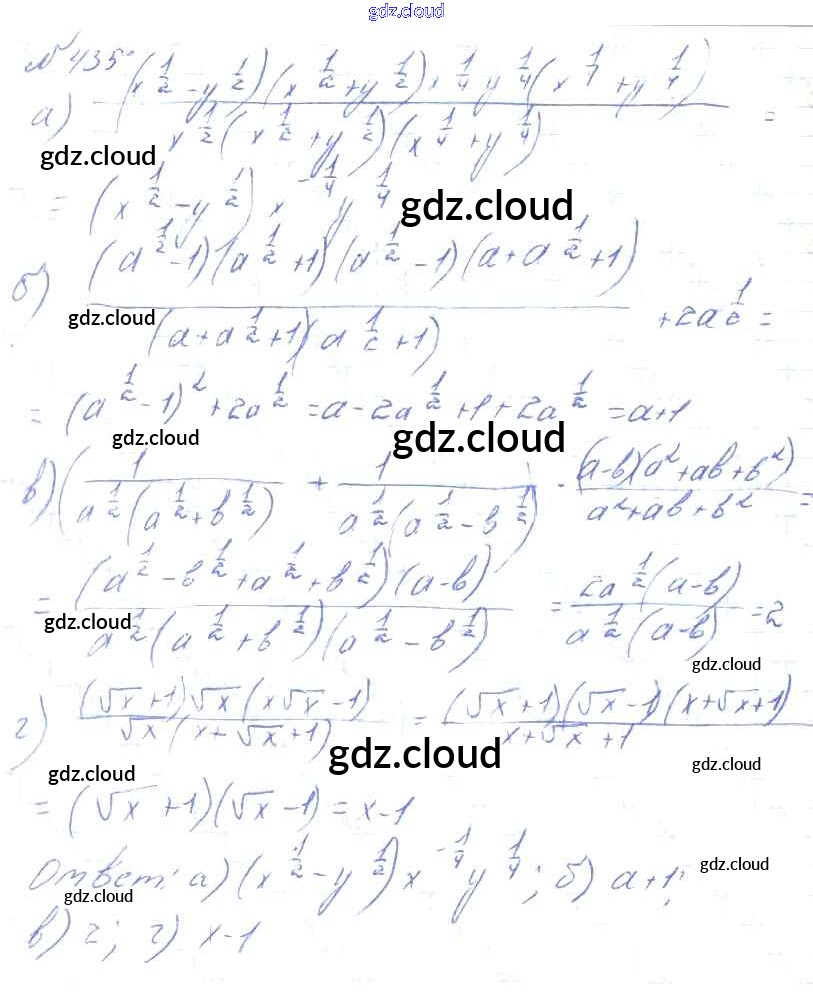 gdz.cloud
№435.
а) \frac{(x^{\frac{1}{2}}-y^{\frac{1}{2}})(x^{\frac{1}{2}}+y^{\frac{1}{2}})x^{\frac{1}{4}}y^{\frac{1}{4}}(x^{\frac{1}{4}}+y^{\frac{1}{4}})}{x^{\frac{1}{2}}(x^{\frac{1}{2}}+y^{\frac{1}{2}})(x^{\frac{1}{4}}+y^{\frac{1}{4}})} =
gdz.cloud
= (x^{\frac{1}{2}}-y^{\frac{1}{2}})x^{-\frac{1}{4}}y^{\frac{1}{4}}
gdz.cloud
б) \frac{(a^{\frac{1}{2}}-1)(a^{\frac{1}{2}}+1)(a^{\frac{1}{2}}-1)(a+a^{\frac{1}{2}}+1)}{(a+a^{\frac{1}{2}}+1)(a^{\frac{1}{2}}+1)} +2a^{\frac{1}{2}} =
gdz.cloud
= (a^{\frac{1}{2}}-1)^2+2a^{\frac{1}{2}} = a-2a^{\frac{1}{2}}+1+2a^{\frac{1}{2}} = a+1
gdz.cloud
gdz.cloud
в) (\frac{1}{a^{\frac{1}{2}}(a^{\frac{1}{2}}+b^{\frac{1}{2}})} + \frac{1}{a^{\frac{1}{2}}(a^{\frac{1}{2}}-b^{\frac{1}{2}})}) \cdot \frac{(a-b)(a^2+ab+b^2)}{a^2+ab+b^2} =
= \frac{(a^{\frac{1}{2}}-b^{\frac{1}{2}}+a^{\frac{1}{2}}+b^{\frac{1}{2}})(a-b)}{a^{\frac{1}{2}}(a^{\frac{1}{2}}+b^{\frac{1}{2}})(a^{\frac{1}{2}}-b^{\frac{1}{2}})} = \frac{2a^{\frac{1}{2}}(a-b)}{a^{\frac{1}{2}}(a-b)} = 2
gdz.cloud
gdz.cloud
г) \frac{(\sqrt{x}+1)\sqrt{x}(x\sqrt{x}-1)}{\sqrt{x}(x+\sqrt{x}+1)} = \frac{(\sqrt{x}+1)(\sqrt{x}-1)(x+\sqrt{x}+1)}{x+\sqrt{x}+1}
gdz.cloud
gdz.cloud
gdz.cloud
= (\sqrt{x}+1)(\sqrt{x}-1) = x-1
Ответ: а) (x^{\frac{1}{2}}-y^{\frac{1}{2}})x^{-\frac{1}{4}}y^{\frac{1}{4}}; б) a+1;
gdz.cloud
gdz.cloud
в) 2; г) x-1